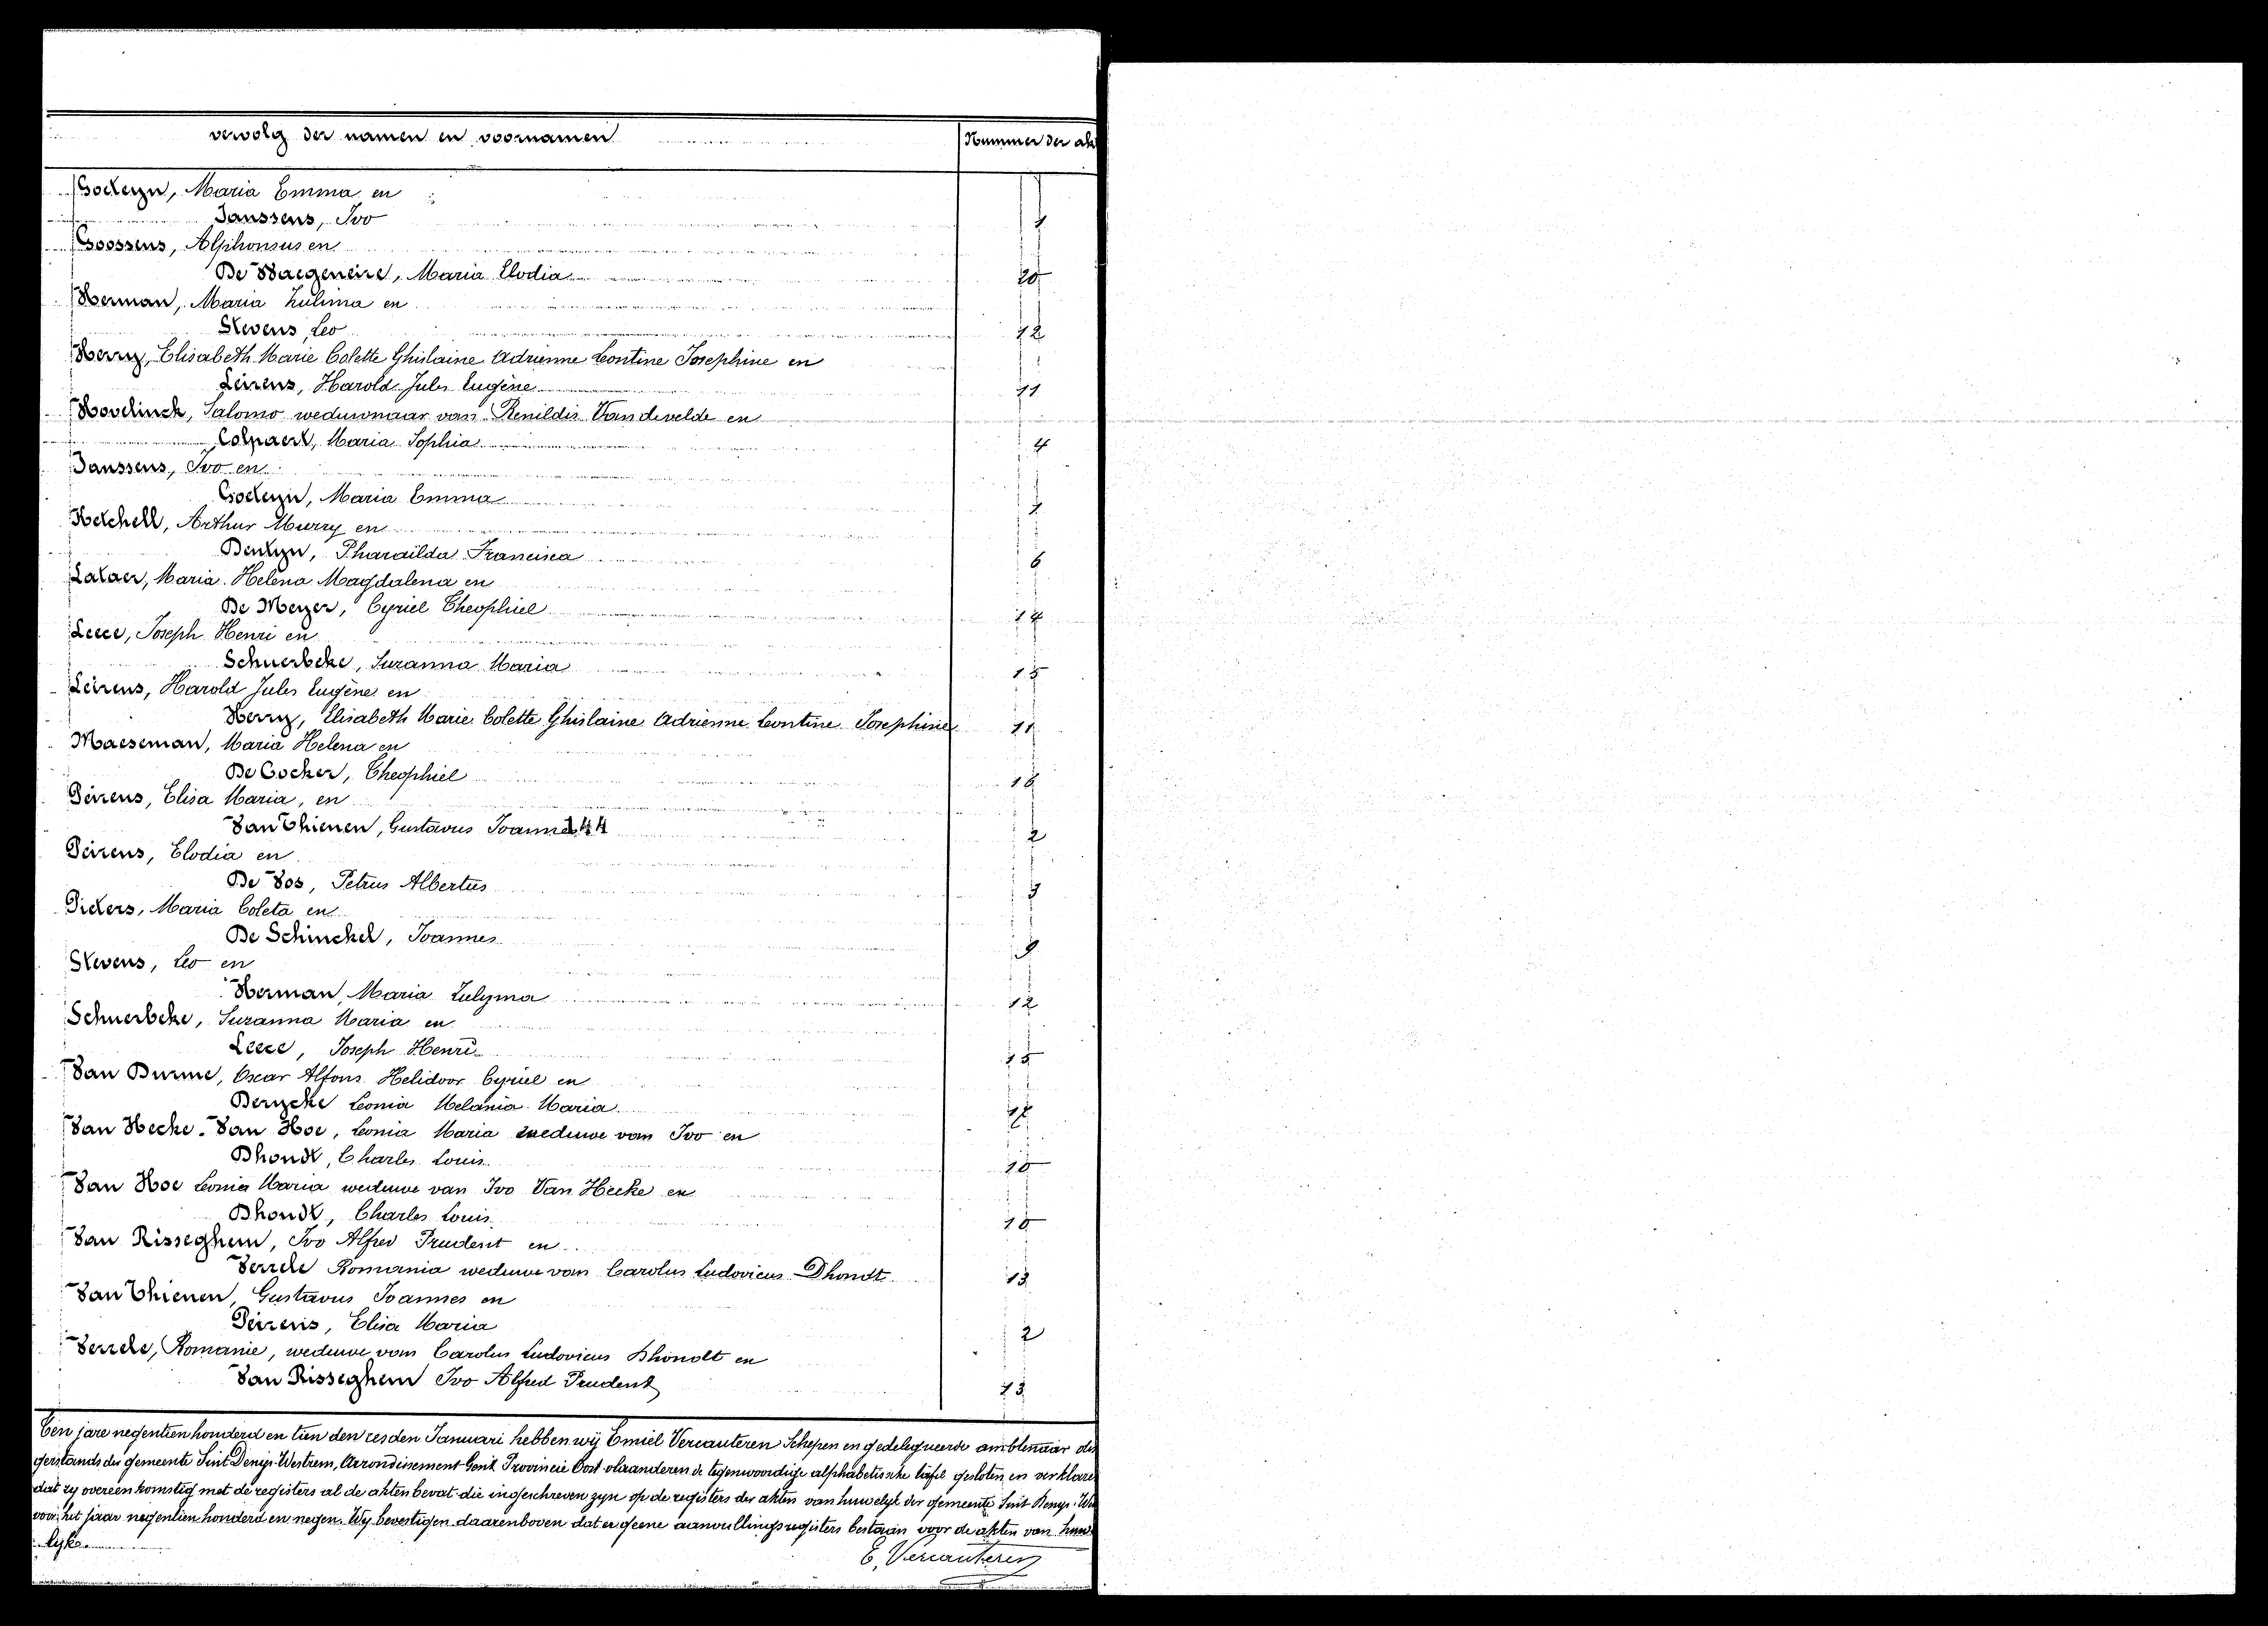 vervolg der namen en voornamen
Nummer der ak
Goeteyn, Maria Emma en
Janssens, Ivo
Goossens, Alphonsus en
De Waegeneire, Maria Elodia
20
Herman, Maria Zulima en
Stevens, Leo
12
Herry, Elisabeth Marie Colette Ghislaine Adrienne Leontine Josephine en
Leirens, Harold Jules Eugène
11
Hovelinck, Salomo weduwnaar van Renildis Vandevelde en
Colpaert, Maria Sophia
4
Janssens, Ivo en
Goeteyn, Maria Emma
Ketchell, Arthur Murry en
Dentyn, Pharaïlda Francisca
6
Lataer, Maria Helena Magdalena en
De Meyer, Cyriel Theophiel
14
Leece, Joseph Henri en
Schuerbeke, Suzanna Maria
15
Leirens, Harold Jules Eugène en
Herry, Elisabeth Marie Colette Ghislaine Adrienne Leontine Josephine
11
Maeseman, Maria Helena en
De Cocker, Theophiel
Peirens, Elisa Maria, en
Van Thienen, Gustavus Joannes 144
2
Peirens, Elodia en
De Vos, Petrus Albertus
3
Picters, Maria Coleta en
De Schinckel, Joannes
9
Stevens, Leo en
Herman, Maria Zulyma
12
Schuerbeke, Suzanna Maria en
Leece, Joseph Henri
15
Van Durme, Oscar Alfons Helidoor Cyriel en
Derycke Leonia Melania Maria
Van Hecke-Van Hoe, Leonia Maria weduwe van Ivo en
Dhondt, Charles Louis
10
Van Hoe Leonia Maria weduwe van Ivo Van Hecke en
Dhondt, Charles Louis
10
Van Risseghem, Ivo Alfred Prudent en
Verrele Romania weduwe van Carolus Ludovicus Dhondt
13
Van Thienen, Gustavus Joannes en
Peirens, Elisa Maria
2
Verrele, Romanie, weduwe van Carolus Ludovicus Dhondt en
Van Risseghem Ivo Alfred Prudent
13
Ten jare negentien honderd en tien den zesden Januari hebben wij Emiel Vercauteren Schepen en gedelegueerde ambtenaar des
gerstands der gemeente Sint Denijs-Westrem, Arrondissement Gent Provincie Oost-vlaanderen de tegenwoordige alphabetische tafel gesloten, en verklare
dat zy overeenkomstig met de registers al de akten bevat die ingeschreven zyn op de registers der akten van huwelyk der gemeente Sint Denys-We
voor het jaar negentien honderd en negen. Wy bevestigen daarenboven dat er geene aanvullingsregisters bestaan voor de akten van huwe
lyke.
E. Vercauteren